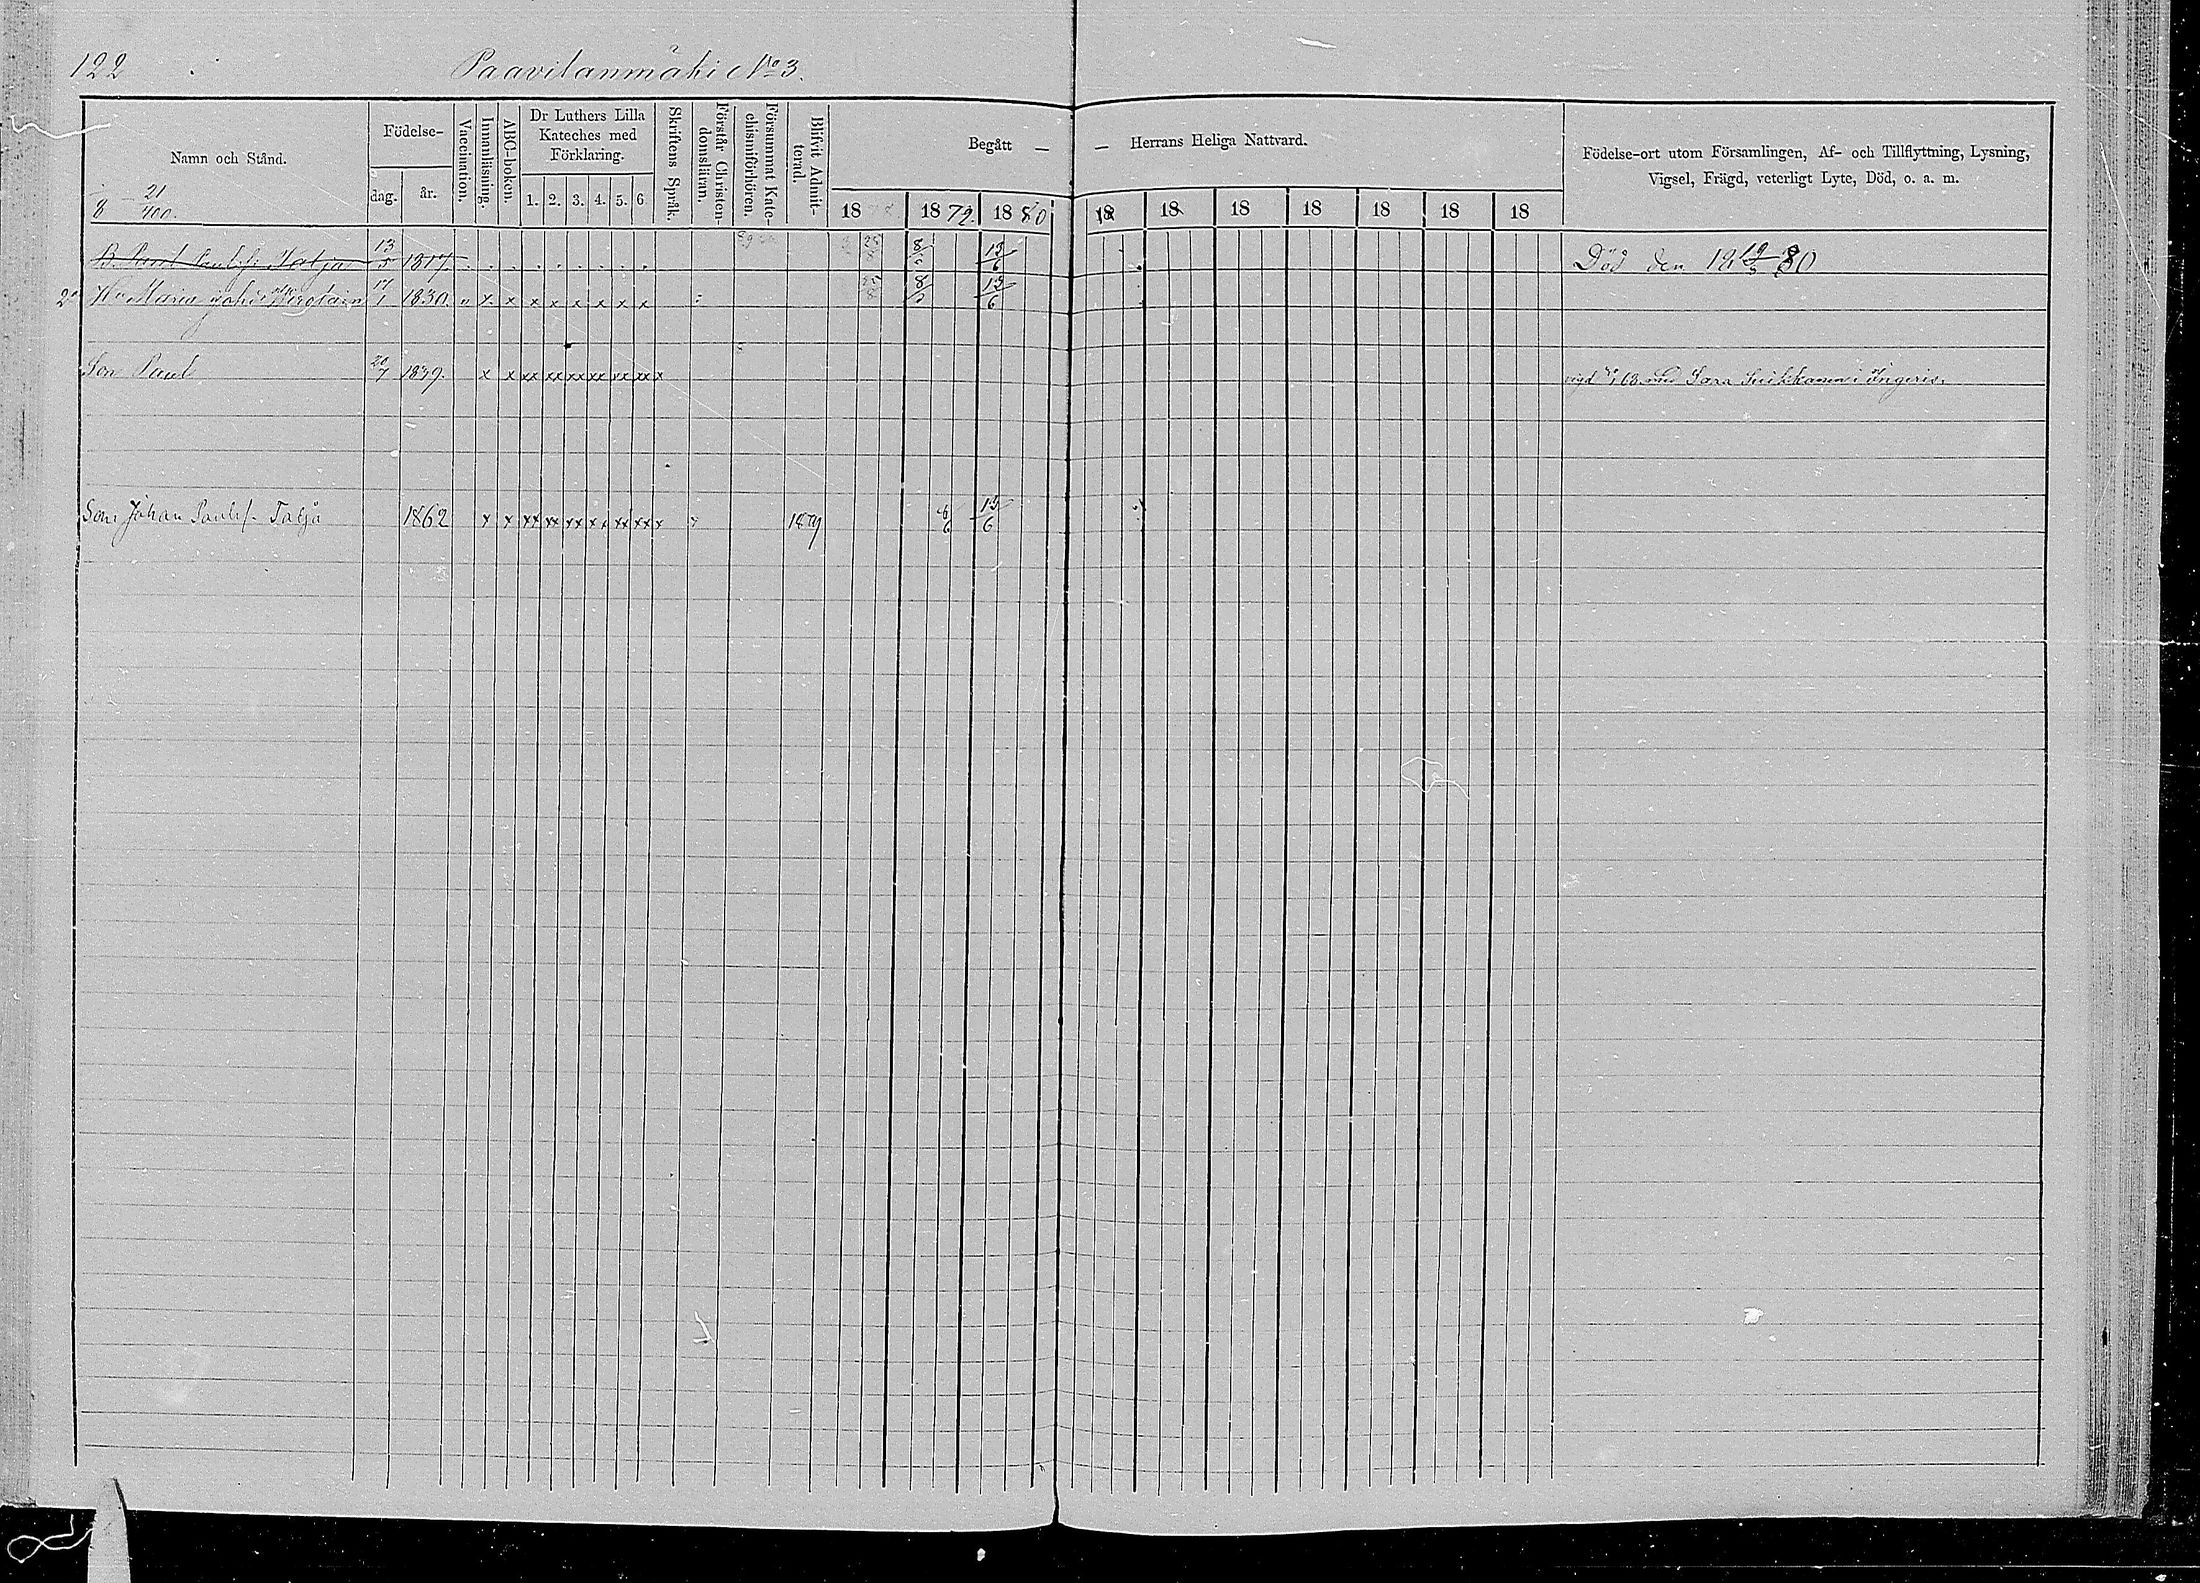 122 Paavilanmäki No 3.
Namn och Stånd.
8 – 21/400.
Födelse-
dag. år.
Vaccination.
Innanläsning.
ABC-boken.
Dr Luthers Lilla
Kateches med
Förklaring.
1. 2. 3. 4. 5. 6
Skriftens Språk.
Förstår Christen-
domsläran.
Försummat Kate-
chismiförhören.
Blifvit Admit-
terad.
Begått — — Herrans Heliga Nattvard.
18 18 79. 18 80 18 18 18 18 18 18 18
Födelse-ort utom Församlingen, Af- och Tillflyttning, Lysning,
Vigsel, Frägd, veterligt Lyte, Död, o. a. m.
B. Paul Paulsf. Talja 13/5 1817. 25/8 8/6 13/6 Död den 18 80
Hu Maria 1830. x x x x x x x x 25/8 8/6 13/6
Son Paul 20/7 1839. x x xx xx xx xx xx xx x vigd med Sara Suikkanen i Ingeris.
Son Johan Paulsf. Talja 1862 x x xx xx xx x x xx xx x 1879 8/6 13/6